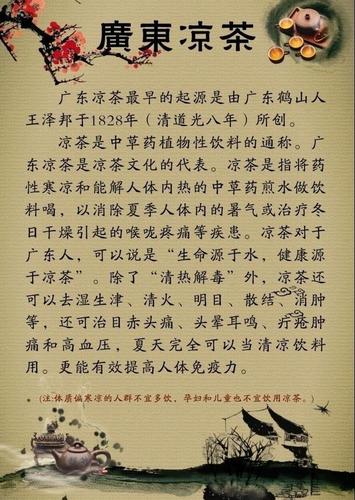 廣東凉茶
广东凉茶最早的起源是由广东鹤山人
王泽邦于1828年（清道光八年）所创。
凉茶是中草药植物性饮料的通称。广
东凉茶是凉茶文化的代表。凉茶是指将药
性寒凉和能解人体内热的中草药煎水做饮
料喝，以消除夏季人体内的暑气或治疗冬
日干燥引起的喉咙疼痛等疾患。凉茶对于
广东人，可以说是“生命源于水，健康源
于凉茶”。除了“清热解毒”外，凉茶还
可以去湿生津、清火、明目、散结、消肿
等，还可治目赤头痛、头晕耳鸣、疔疮肿
痛和高血压，夏天完全可以当清凉饮料
用。更能有效提高人体免疫力。
(注:体质偏寒凉的人群不宜多饮，孕妇和儿童也不宜饮用凉茶。)